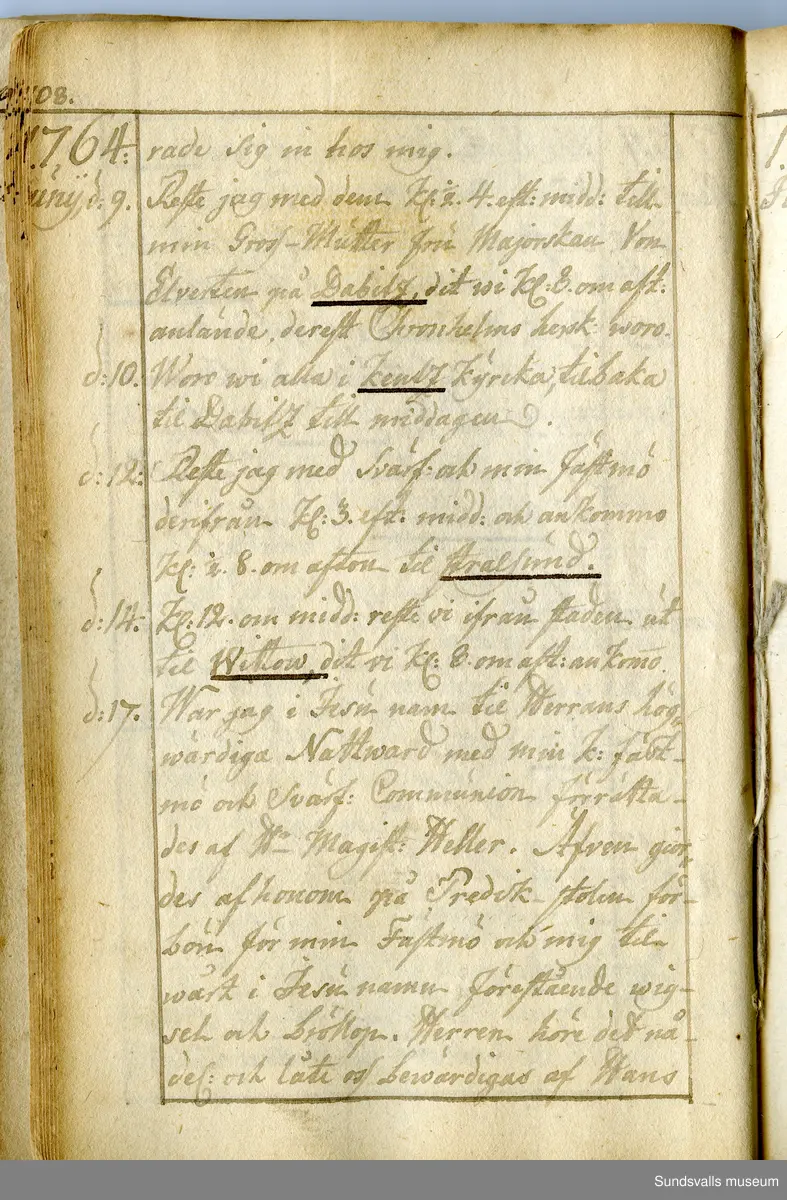 108.
1764. rade sig in hos mig.
Junÿ, d: 9. Reste jag med dem Kl: ½ 4. eft: midd: till
min Gros-Mutter fru Majorskan Von
Elverten på Dabitz, dit wi Kl: 8. om aft:
anlände, derest Chronhelms hersk: woro.
d: 10. Wore wi alla i Kentz Kÿrcka, tilbaka
til Dabitz till middagen.
d: 12: Reste jag med Svärf: och min Fästmö
derifrån Kl: 3. eft: midd: och ankommo
Kl: ½ 8. om afton til Stralsund.
d: 14. Kl: 12. om midd: reste vi ifrån staden ut
til Wittow, dit vi Kl: 8. om aft: ankomo.
d: 17. War jag i Jesu nam til Herrans hög-
wärdiga Nattward med min k: fäst-
mö och Svärf: Communion förrätta-
des af Hr Magist: Heller. Äfven gior-
des af honom på Predik-stolen för-
bön för min Fästmö och mig til
wårt i Jesu namn förestående wig-
sel och bröllop. Herren höre det nå-
del: och låte oss bewärdigas af Hans
Sundsvalls museum